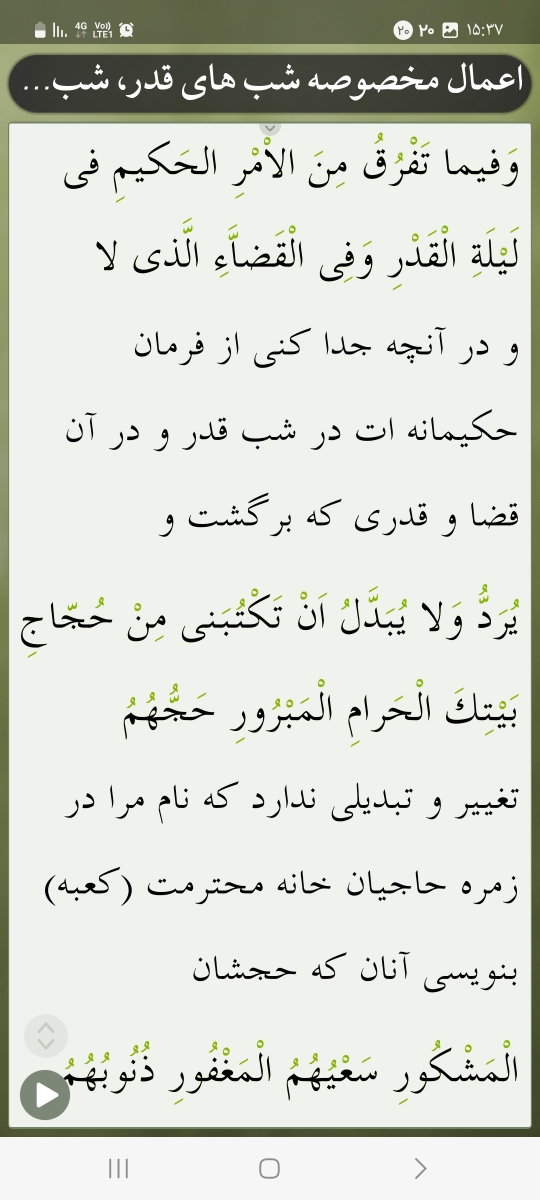 ۱۵:۳۷ ۲۰ ۲۰ 4G Vo)) LTE1
اعمال مخصوصه شب های قدر، شب...
وَفیما تَفْرُقُ مِنَ الاْمْرِ الحَکیمِ فی
لَیْلَةِ الْقَدْرِ وَفِی الْقَضاَّءِ الَّذی لا
و در آنچه جدا کنی از فرمان
حکیمانه ات در شب قدر و در آن
قضا و قدری که برگشت و
یُرَدُّ وَلا یُبَدَّلُ اَنْ تَکْتُبَنی مِنْ حُجّاجِ
بَیْتِكَ الْحَرامِ الْمَبْرُورِ حَجُّهُمُ
تغییر و تبدیلی ندارد که نام مرا در
زمره حاجیان خانه محترمت (کعبه)
بنویسی آنان که حجشان
الْمَشْکُورِ سَعْیُهُمُ الْمَغْفُورِ ذُنُوبُهُمُ